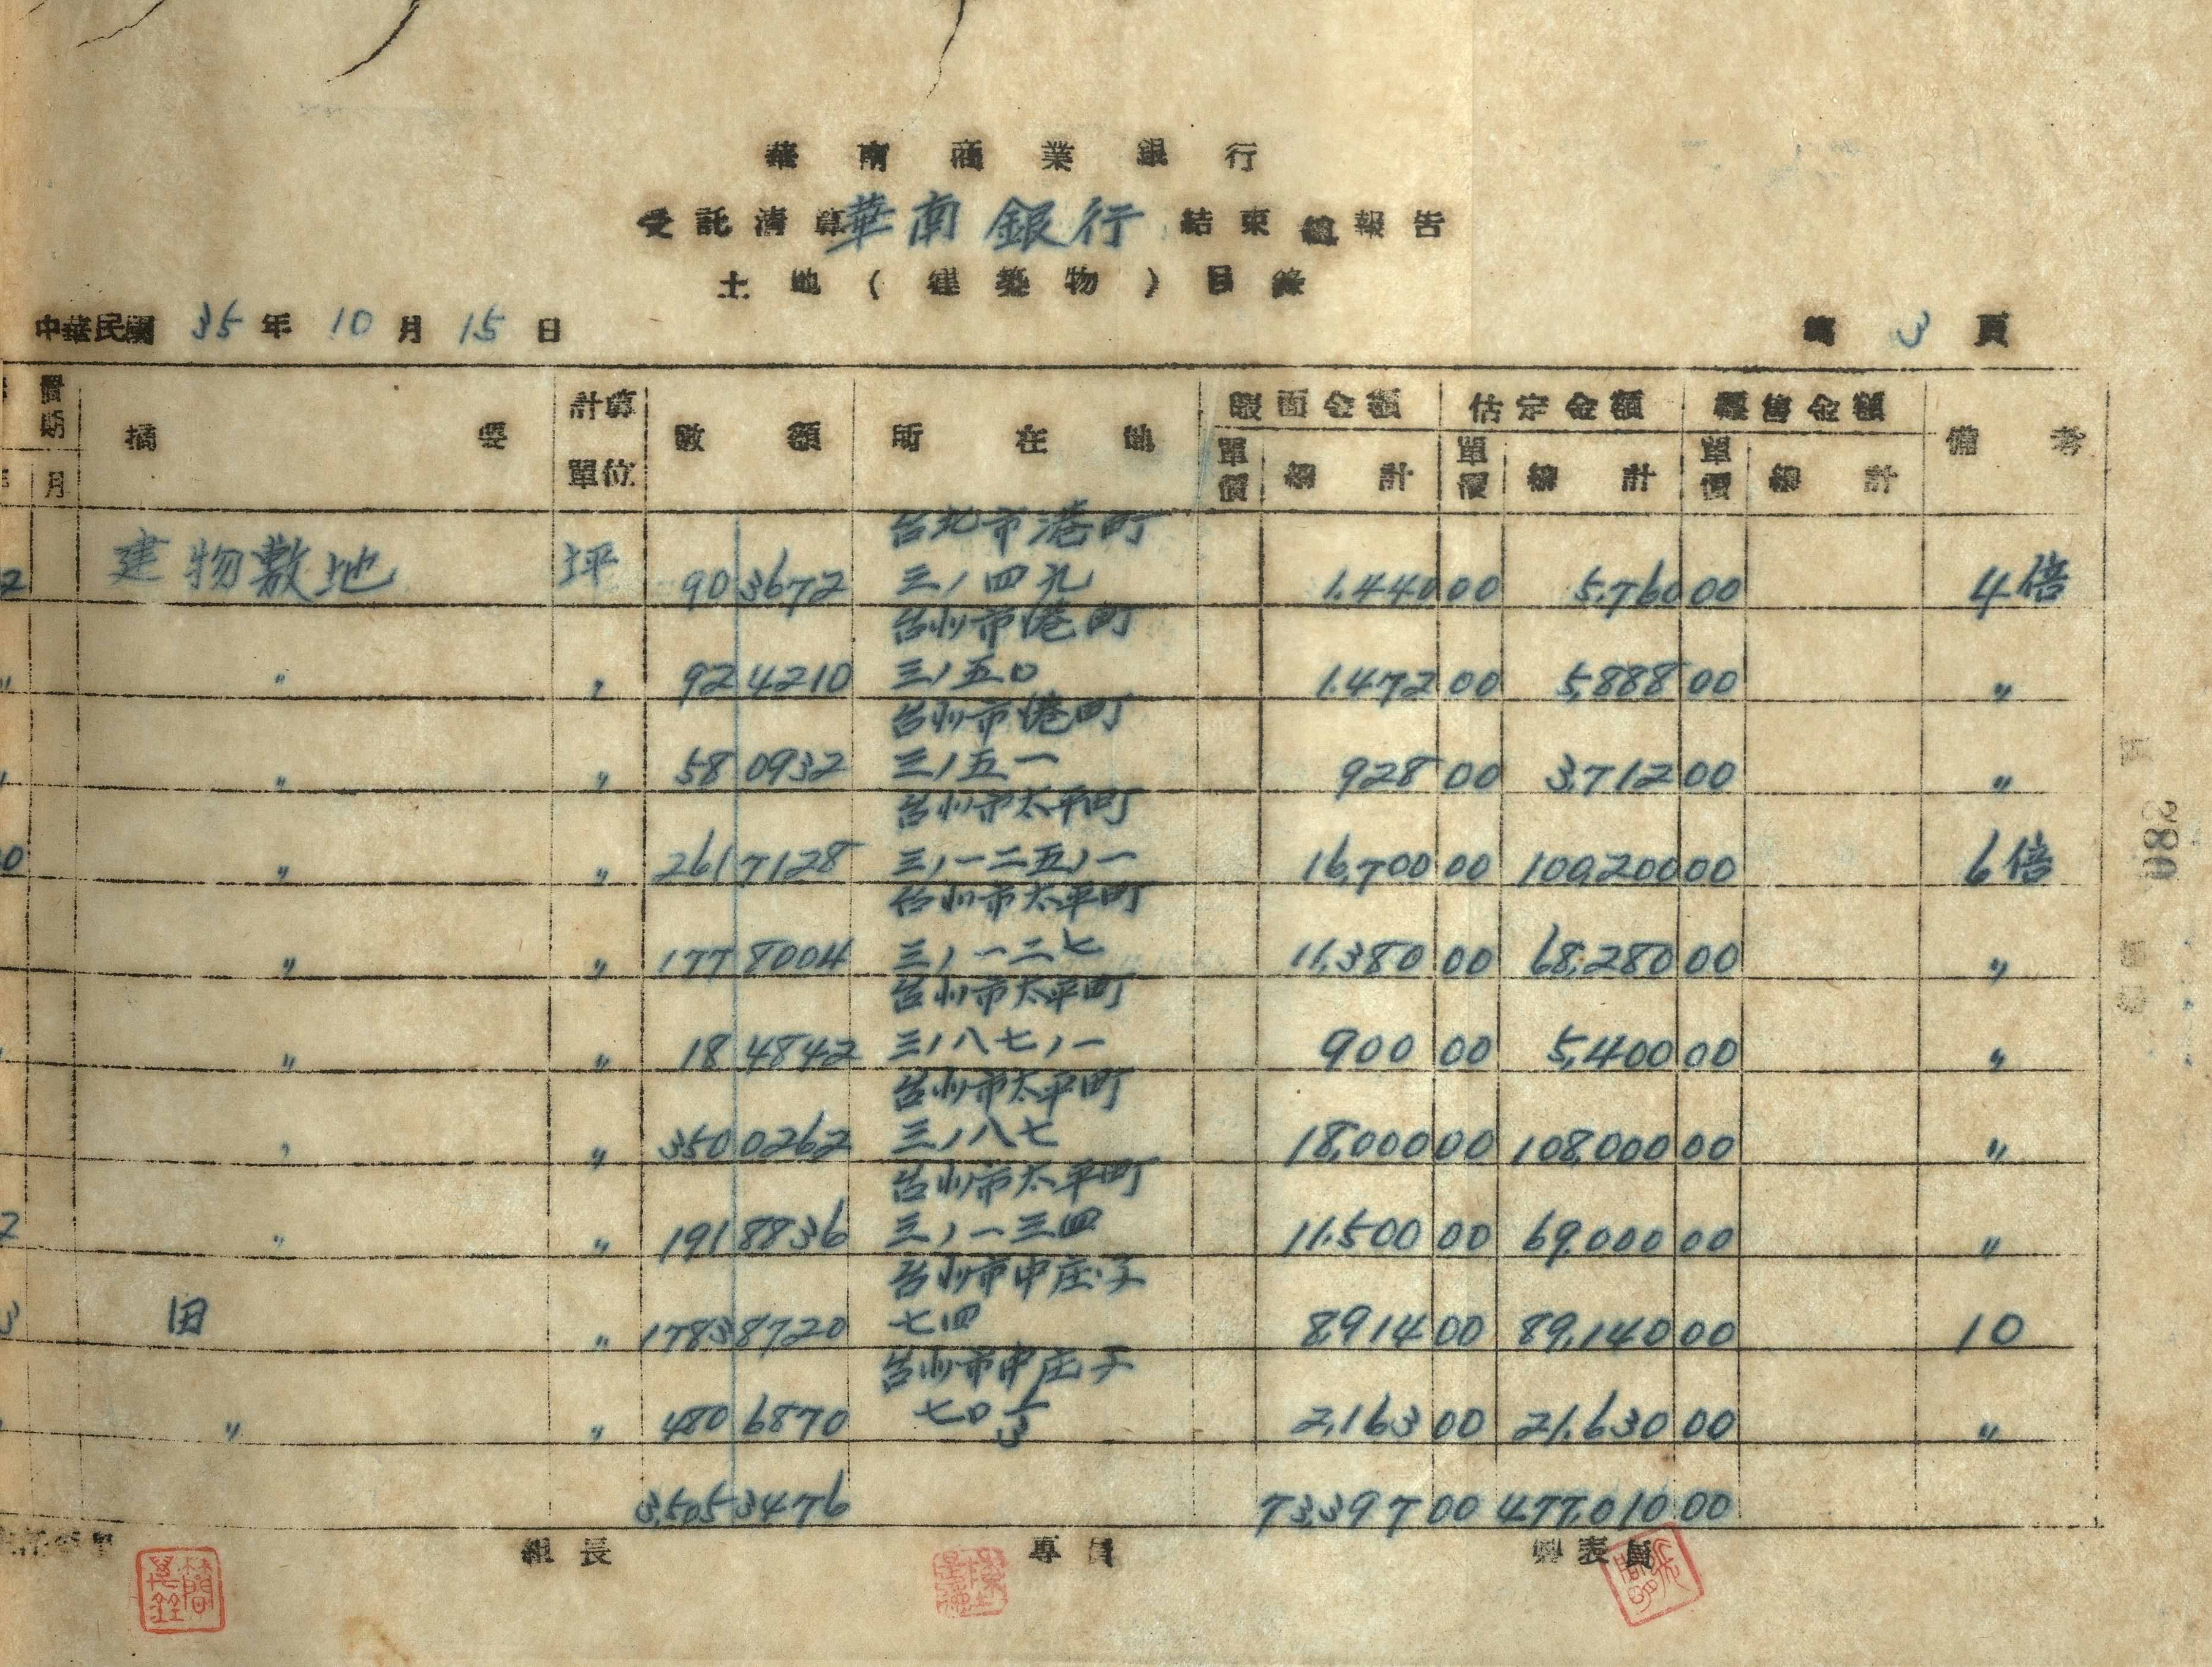 華南商業銀行
受託清算華南銀行結束總報告
土地(建築物)目錄
中華民國 35 年 10 月 15 日 第 3 頁
價 摘要 計算單位 數額 所在地 賬面金額 估定金額 備考
月 單價 總計 單價 總計 單價 總計
台北市港町
2 建物敷地 坪 90 3672 三ノ四九 1.440 00 5,760 00 4倍
台北市港町
〃 〃 〃 92 4210 三ノ五0 1.472 00 5,888 00 〃
台北市港町
〃 〃 58 0932 三ノ五一 928 00 3,712 00 〃
台北市太平町
0 〃 〃 261 7128 三ノ一二五ノ一 16,700 00 100,200 00 6倍
台北市太平町
〃 〃 177 8004 三ノ一二七 11,380 00 68,280 00 〃
台北市太平町
〃 〃 18 4842 三ノ八七ノ一 900 00 5,400 00 〃
台北市太平町
〃 〃 350 0262 三ノ八七 18,000 00 108,000 00 〃
台北市太平町
2 〃 〃 191 8836 三ノ一三四 11.500 00 69,000 00 〃
台北市中庄子
3 田 〃 1783 8720 七四 8914 00 89,140 00 10
台北市中庄子
〃 〃 480 6870 七0 1/3 2,163 00 21,630 00 〃
3,505 3476 73,397 00 477,010 00
組長 專員 製表員
280